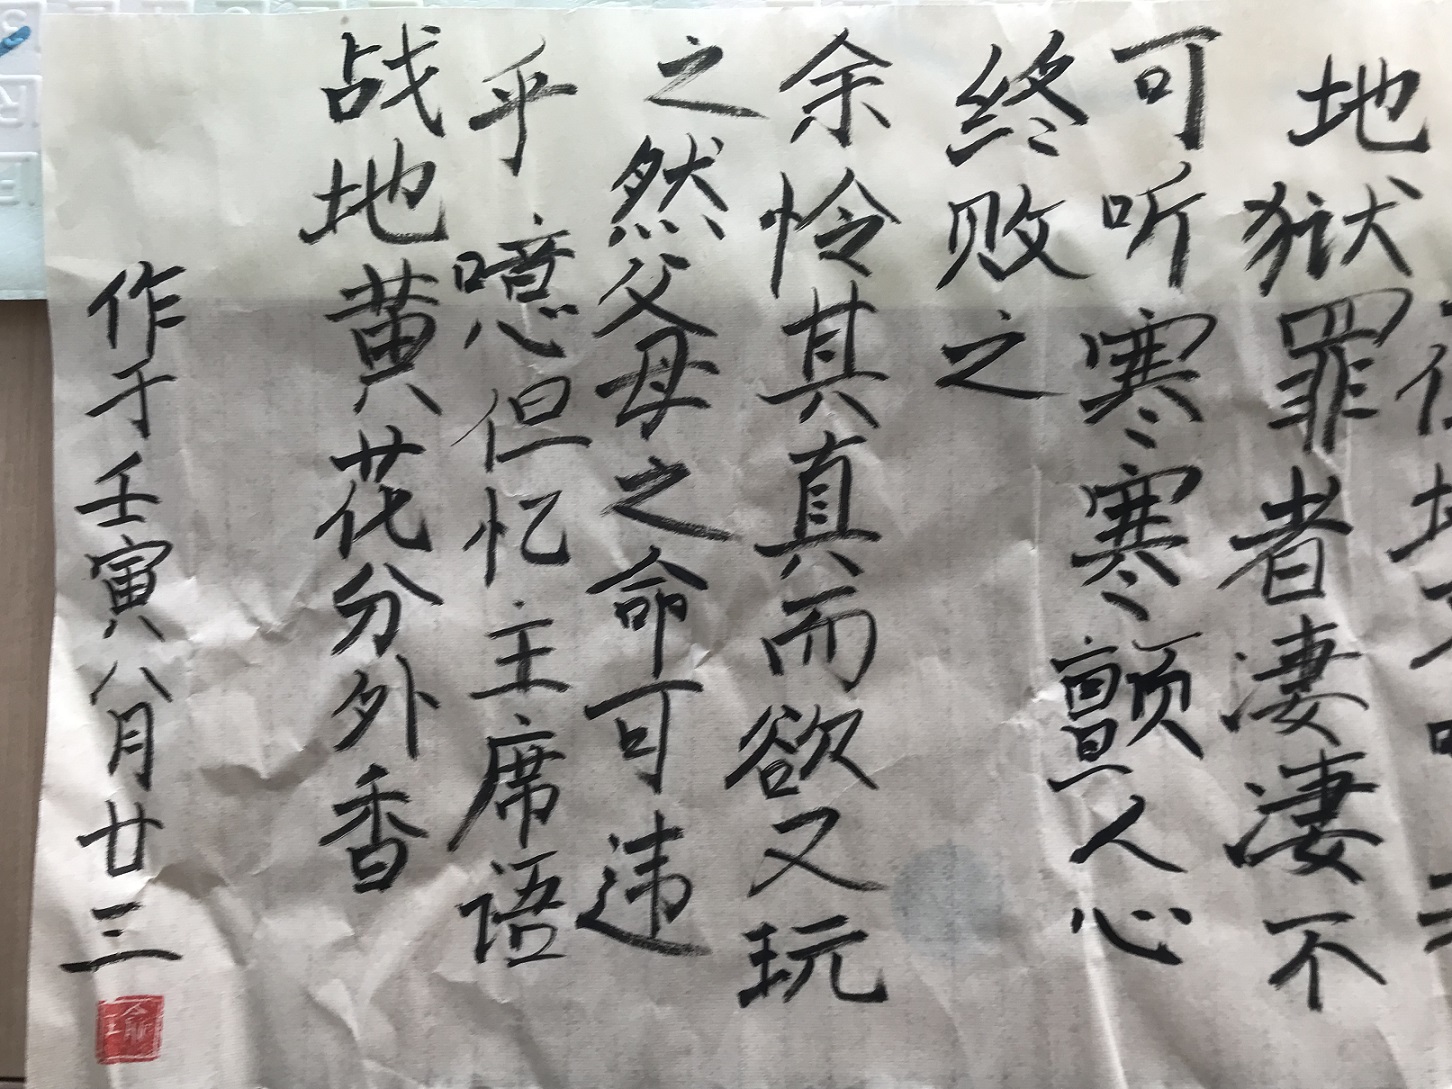 地狱罪者凄凄不
可听寒寒颤人心
終败之
余怜其真而欲又玩
之然父母之命可违
乎噫但忆主席语
战地黄花分外香
作于壬寅八月廿三
瑜